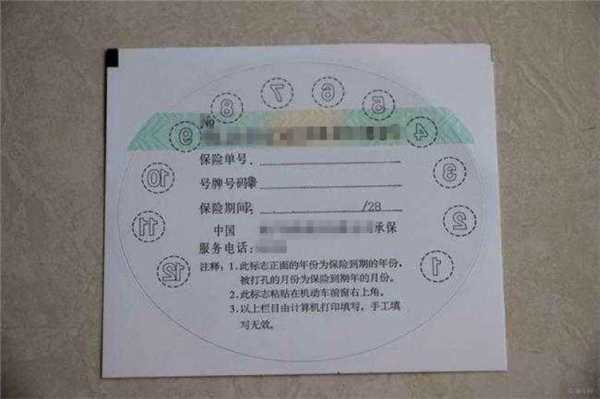 7 6
8 5
9 4
10 3
11 2
12 1
No
保险单号
号牌号码
保险期间 /28
中国 承保
服务电话:
注释:1.此标志正面的年份为保险到期的年份,
被打孔的月份为保险到期年的月份。
2.此标志粘贴在机动车前窗右上角。
3.以上栏目由计算机打印填写,手工填
写无效。